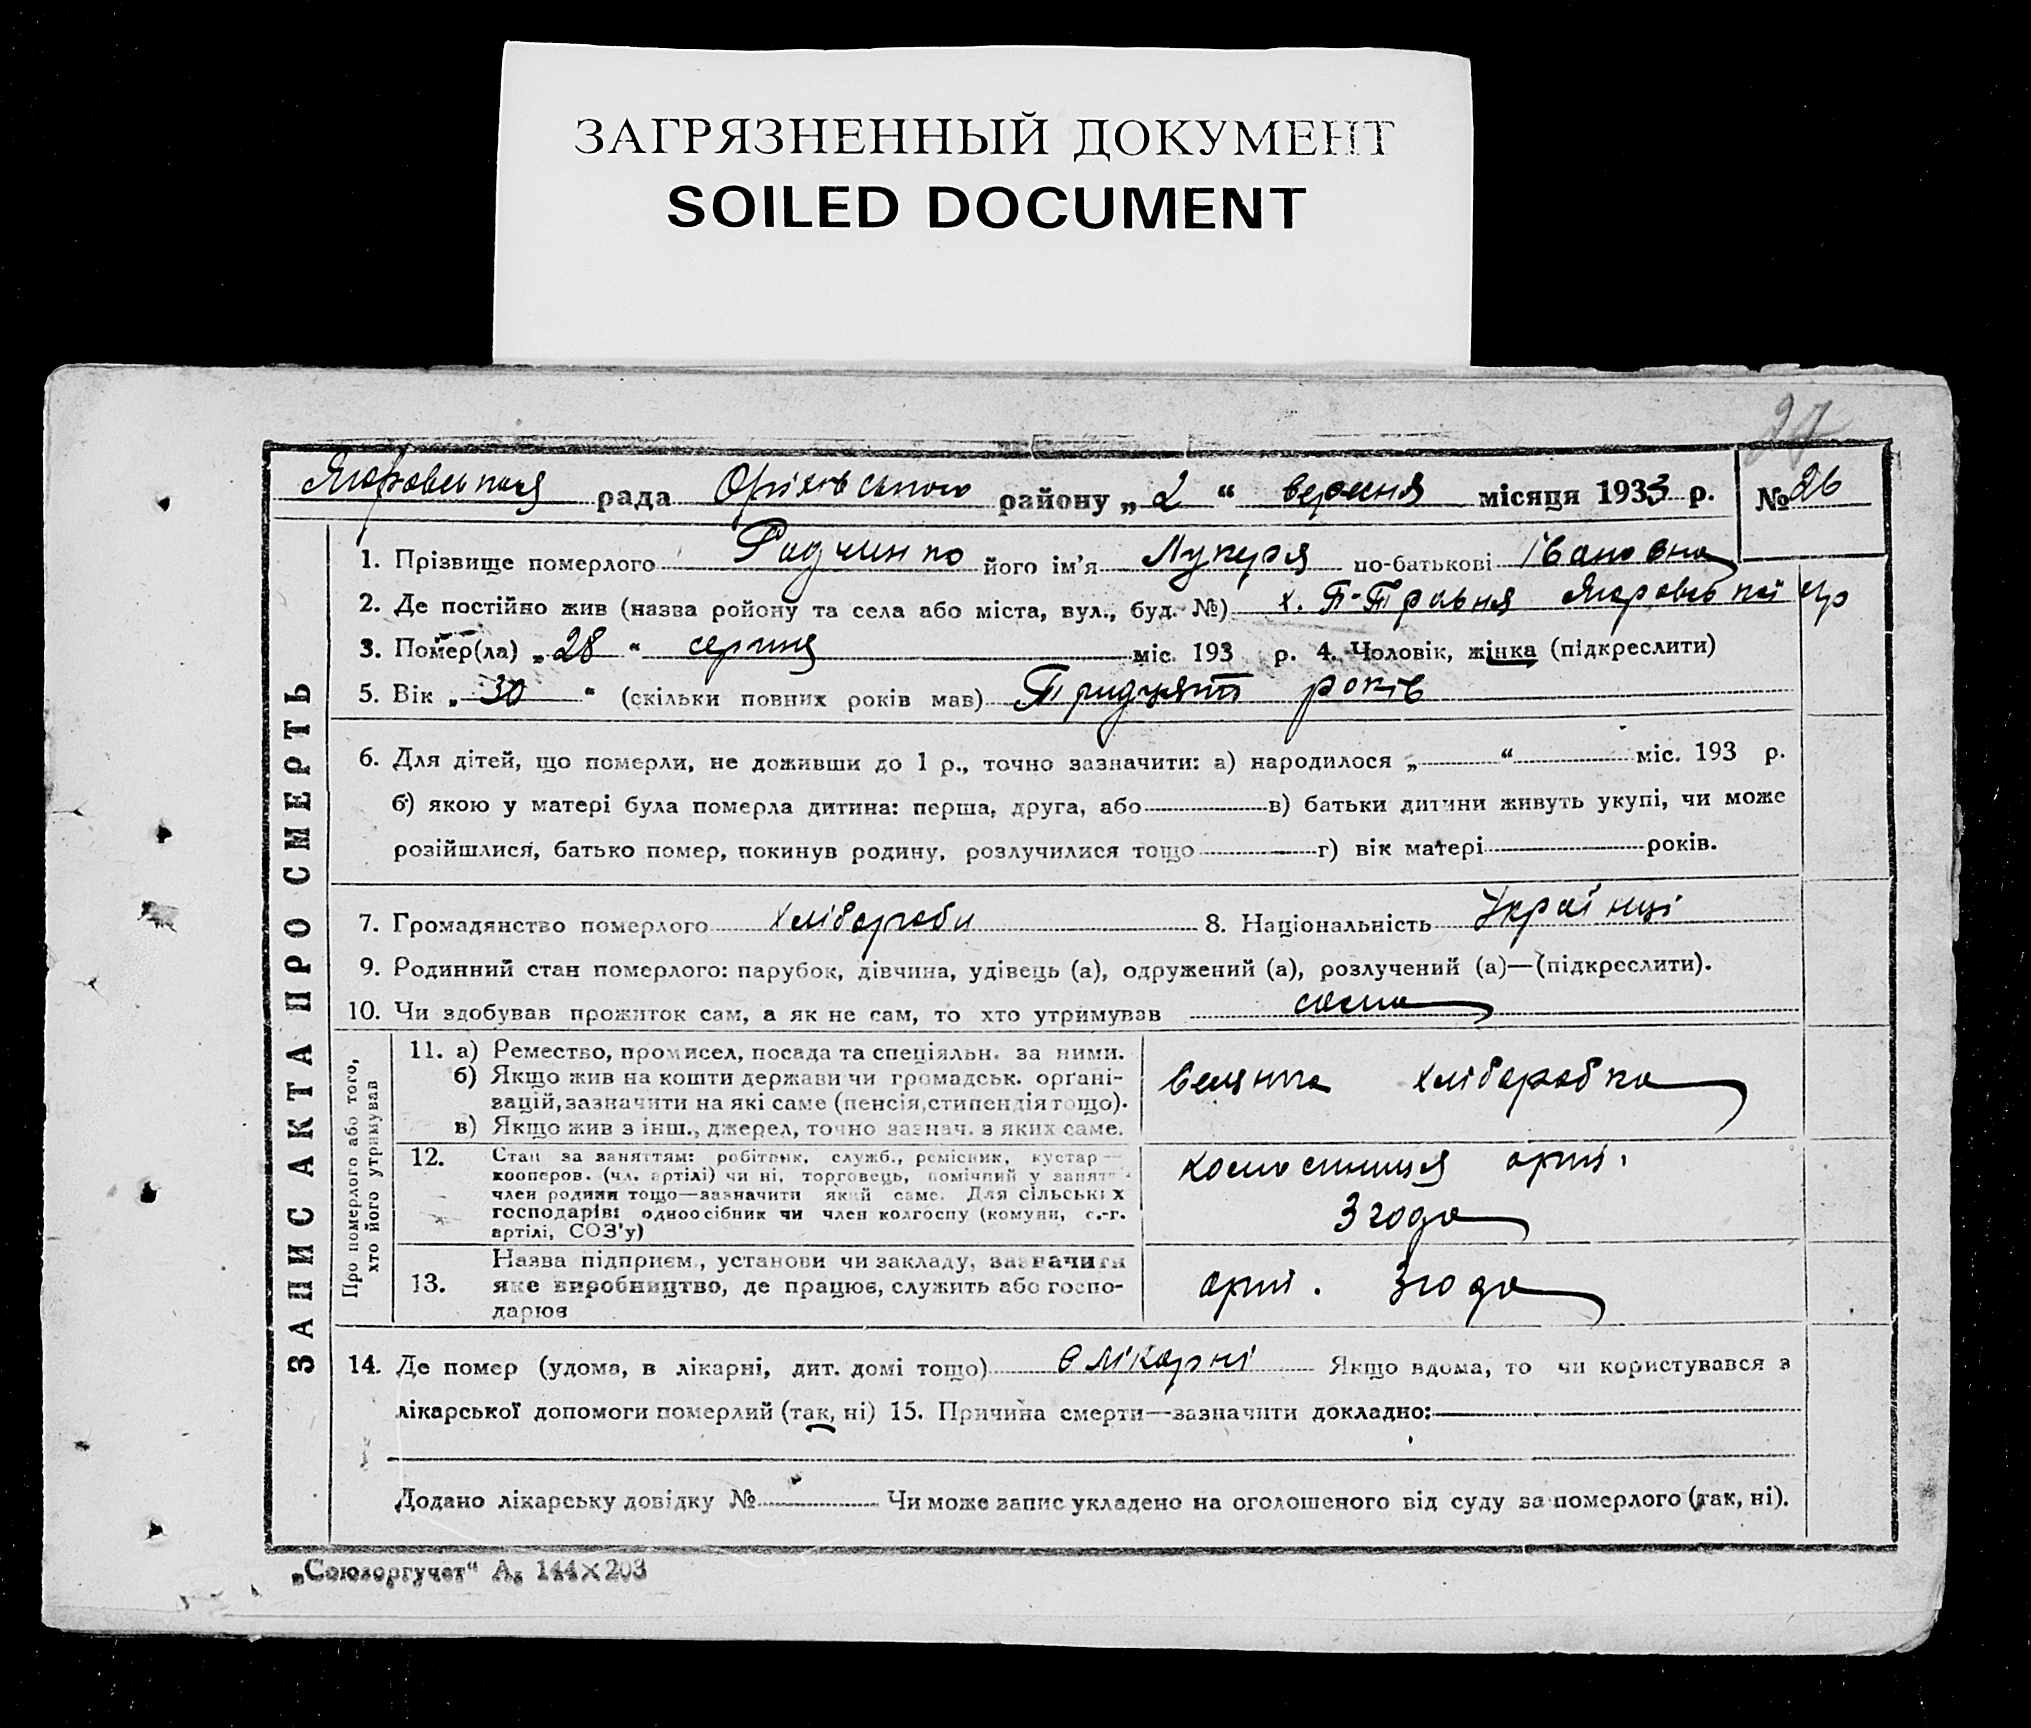 ЗАГРЯЗНЕННЫЙ ДОКУМЕНТ
SOILED DOCUMENT
27
рада Оріхівського району „ 2 “ вересня місяця 1933 р. № 26
ЗАПИС АКТА ПРО СМЕРТЬ
1. Прізвище померлого Радченко його ім’я Лукеря по-батькові Івановна
2. Де постійно жив (назва ройону та села або міста, вул., буд. №) х. П-Травня
3. Помер(ла) „ 28 “ серпня міс. 193 р. 4. Чоловік, жінка (підкреслити)
5. Вік „ 30 “ (скільки повних років мав) Тридцять років
6. Для дітей, що померли, не доживши до 1 р., точно зазначити: а) народилося „ “ міс. 193 р.
б) якою у матері була померла дитина: перша, друга, або в) батьки дитини живуть укупі, чи може
розійшлися, батько помер, покинув родину, розлучилися тощо г) вік матері років.
7. Громадянство померлого хлібороби 8. Національність Українці
9. Родинний стан померлого: парубок, дівчина, удівець (а), одружений (а), розлучений (а)—(підкреслити).
10. Чи здобував прожиток сам, а як не сам, то хто утримував сама
Про померлого або того,
хто його утримував
11. а) Ремество, промисел, посада та спеціяльн. за ними.
б) Якщо жив на кошти держави чи громадськ. орґані-
зацій, зазначити на які саме (пенсія, стипендія тощо).
в) Якщо жив з інш., джерел, точно зазнач. з яких саме.
хліборобка
12. Стан за заняттям: робітник, служб., ремісник, кустар—
кооперов. (чл. артілі) чи ні, торговець, помічний у занятті
член родини тощо—зазначити який саме. Для сільських
господарів: одноосібник чи член колгоспу (комуни, с.-г.
артілі, СОЗ’у)
арті.
Згода
13. Назва підприєм., установи чи закладу, зазначити
яке виробництво, де працює, служить або госпо-
дарює
арті. Згода
14. Де помер (удома, в лікарні, дит. домі тощо) в лікарні Якщо вдома, то чи користувався з
лікарської допомоги померлий (так, ні) 15. Причина смерти—зазначити докладно:
Додано лікарську довідку № Чи може запис укладено на оголошеного від суду за померлого (так, ні).
„Союзоргучет“ А₅ 144×203